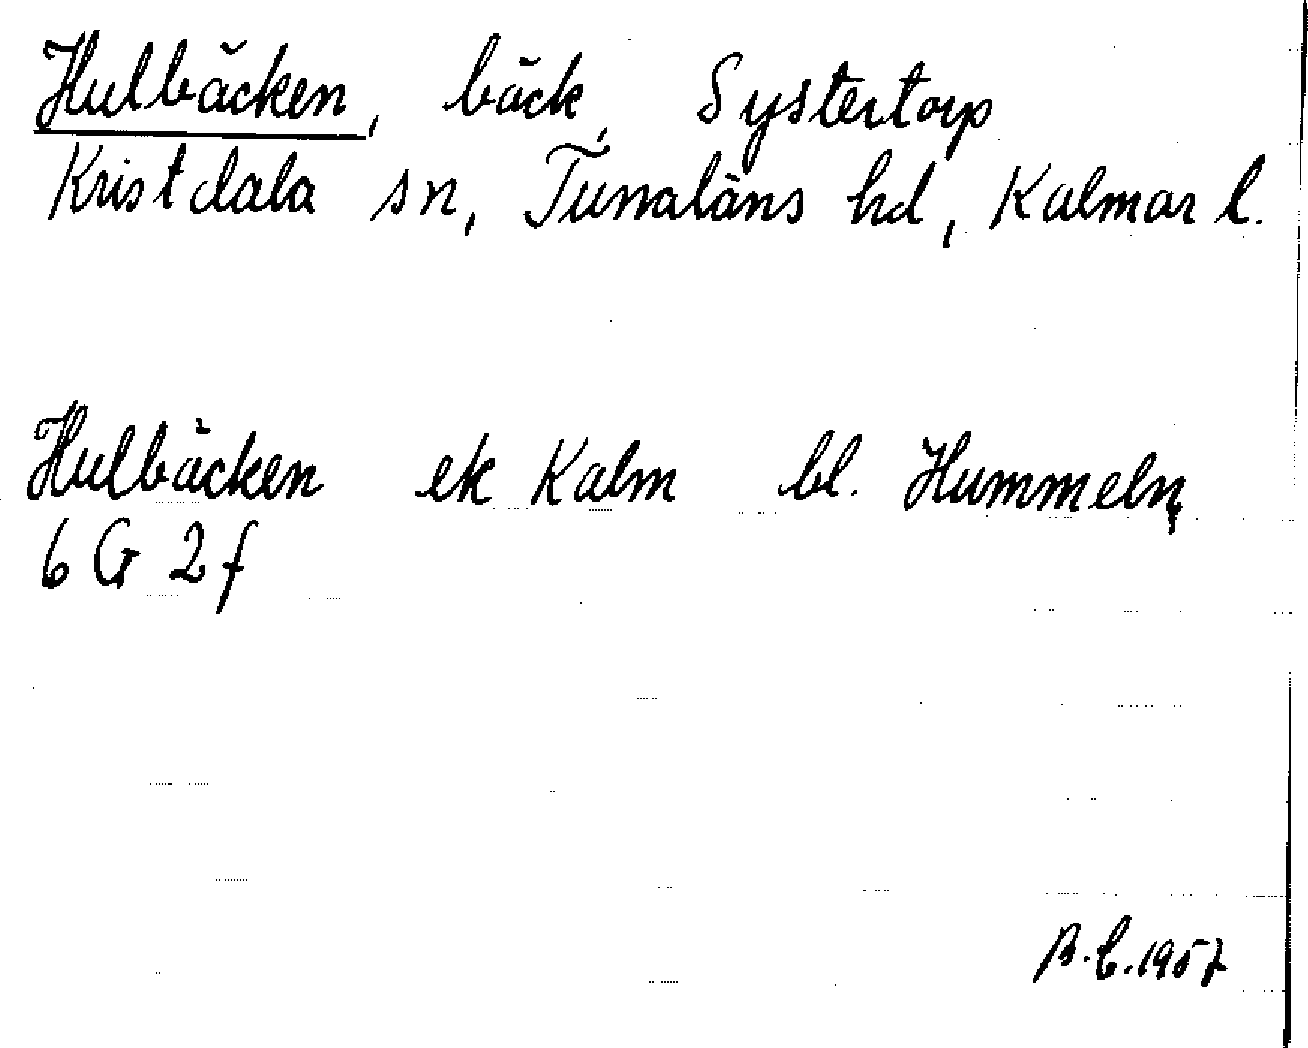 Hulbäcken, bäck, Systertorp
Kristdala sn, Tunaläns hd, Kalmar l.
Hulbäcken ek Kalm bl. Hummeln,
6 G 2f
B.C.1957